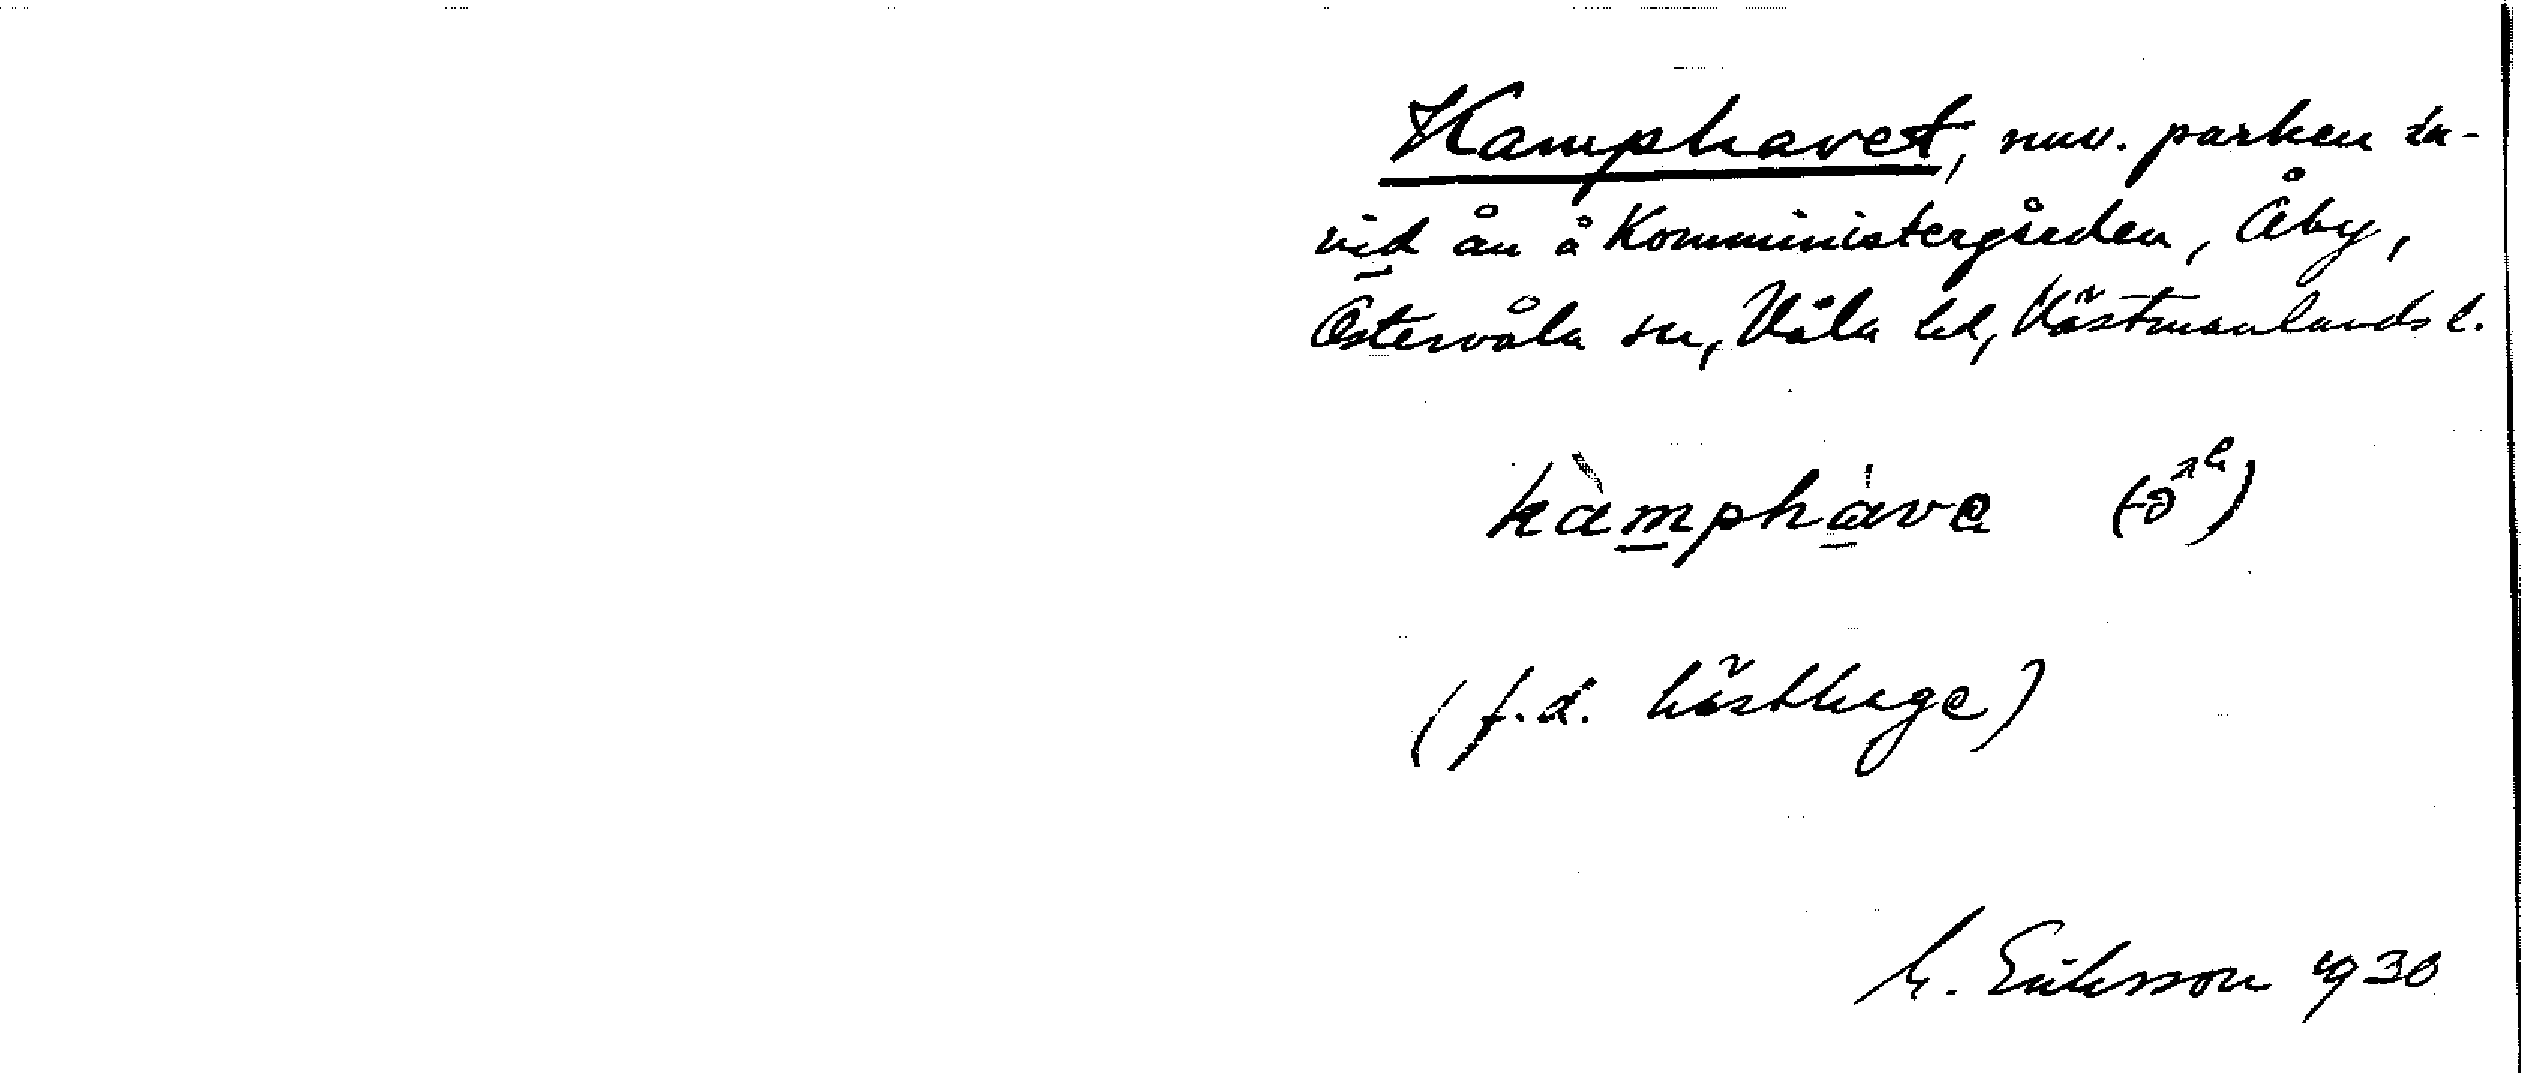 Kamphavet, nuv. parken in-
vid ån å Komministergården, Åby,
Östervåla sn, Våla hd, Västmanlands l.
kàmphàve (-ə)
(f.d. hästhage)
Eriksson 1930